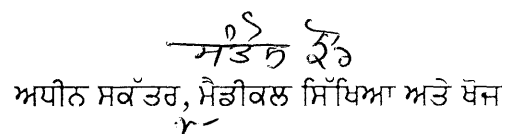 ਅਧੀਨ ਸਕੱਤਰ, ਮੈਡੀਕਲ ਸਿੱਖਿਆ ਅਤੇ ਖੋਜ